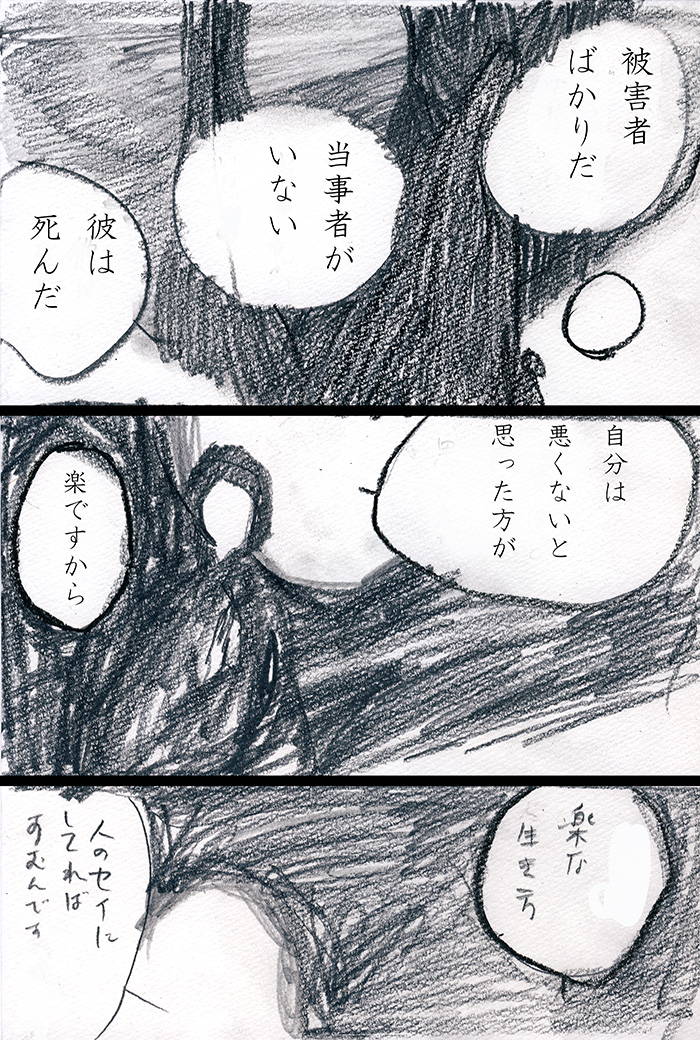 被害者
ばかりだ
当事者が
いない
彼は
死んだ
自分は
悪くないと
思った方が
楽ですから
楽な
生き方
人のセイに
してれば
すむんです